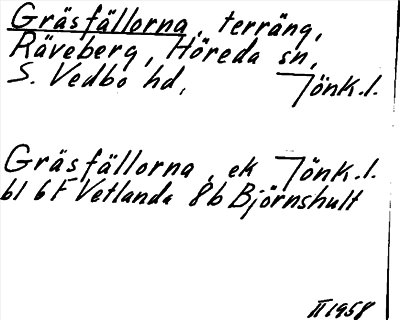 Gräsfällorna, terräng,
Räveberg, Höreda sn,
S. Vedbo hd, Jönk.l.
Gräsfällorna, ek Jönk.l.
bl 6F Vetlanda 8b Björnshult
II 1958